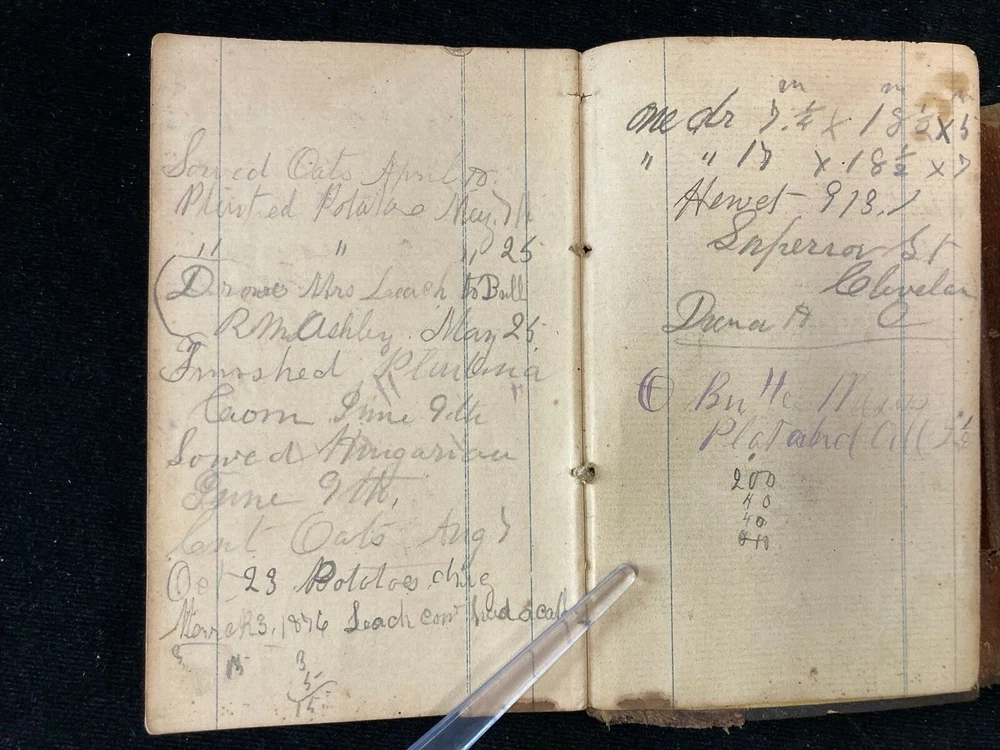 Sowed Oats April
Planted Potatoe May 7th
" " " 25
Drove Mrs Leach to Bull
R M Ashley May 25
Finished Planting
Corn June 9th
Sowed Hungarian
June 9th,
Cut Oats Aug 7
Oct 23 Potatoes dug
March 3, 1876 Leach cow had a calf
3 15 3
5
15
m m m
one dr 7 1/4 x 18 1/2 x 5
" " 17 x 18 1/2 x 7
Hewet 913
Superior St
Clevelan
O
200
40
40